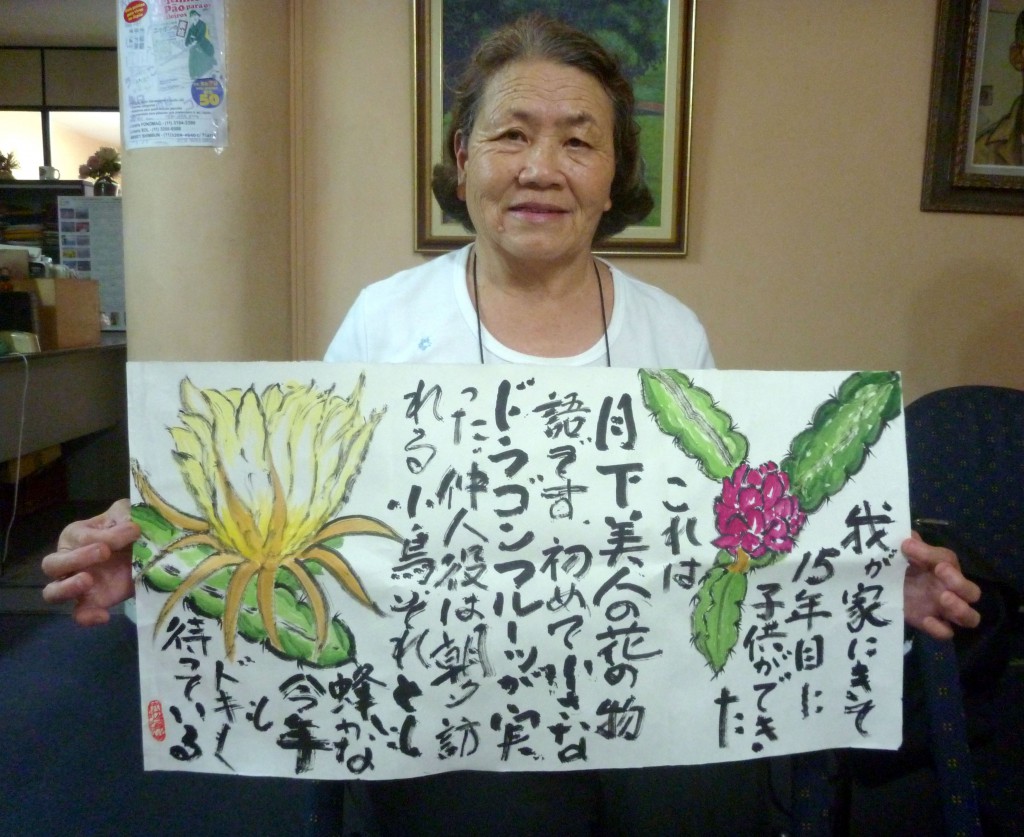 我が家にきて
15年目に
子供ができ
た
これは
月下美人の花の物
語です、初めて小さな
ドラゴンフルーツが実
った、仲人役は朝夕訪
れる小鳥、それとも
蜂かな
今年
も
ドキ〱
待っている
Pão para
50